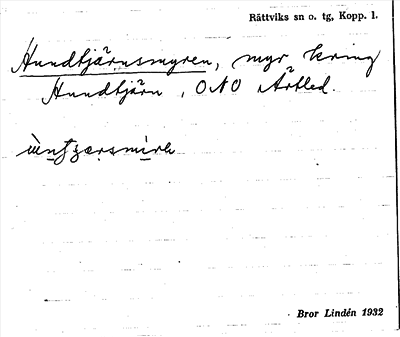 Rättviks sn o. tg, Kopp. l.
Hundtjärnsmyren, myr kring
Hundtjärn, ONO Artled.
Bror Lindén 1932